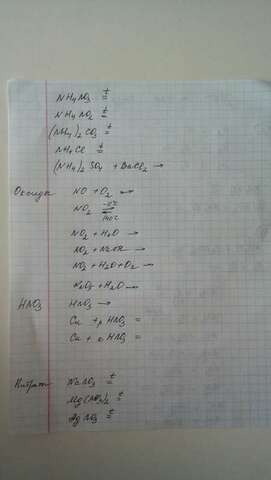 NH4NO3 t=
NH4NO2 t=
(NH4)2CO3 t=
NH4Cl t=
(NH4)2SO4 + BaCl2 →
Оксиды NO + O2 →
NO2 ⇄
140°C
NO2 + H2O →
NO2 + NaOH →
NO2 + H2O + O2 →
N2O5 + H2O →
HNO3 HNO3 →
Cu + р HNO3 =
Cu + к HNO3 =
Нитраты NaNO3 t=
Mg(NO3)2 t=
AgNO3 t=